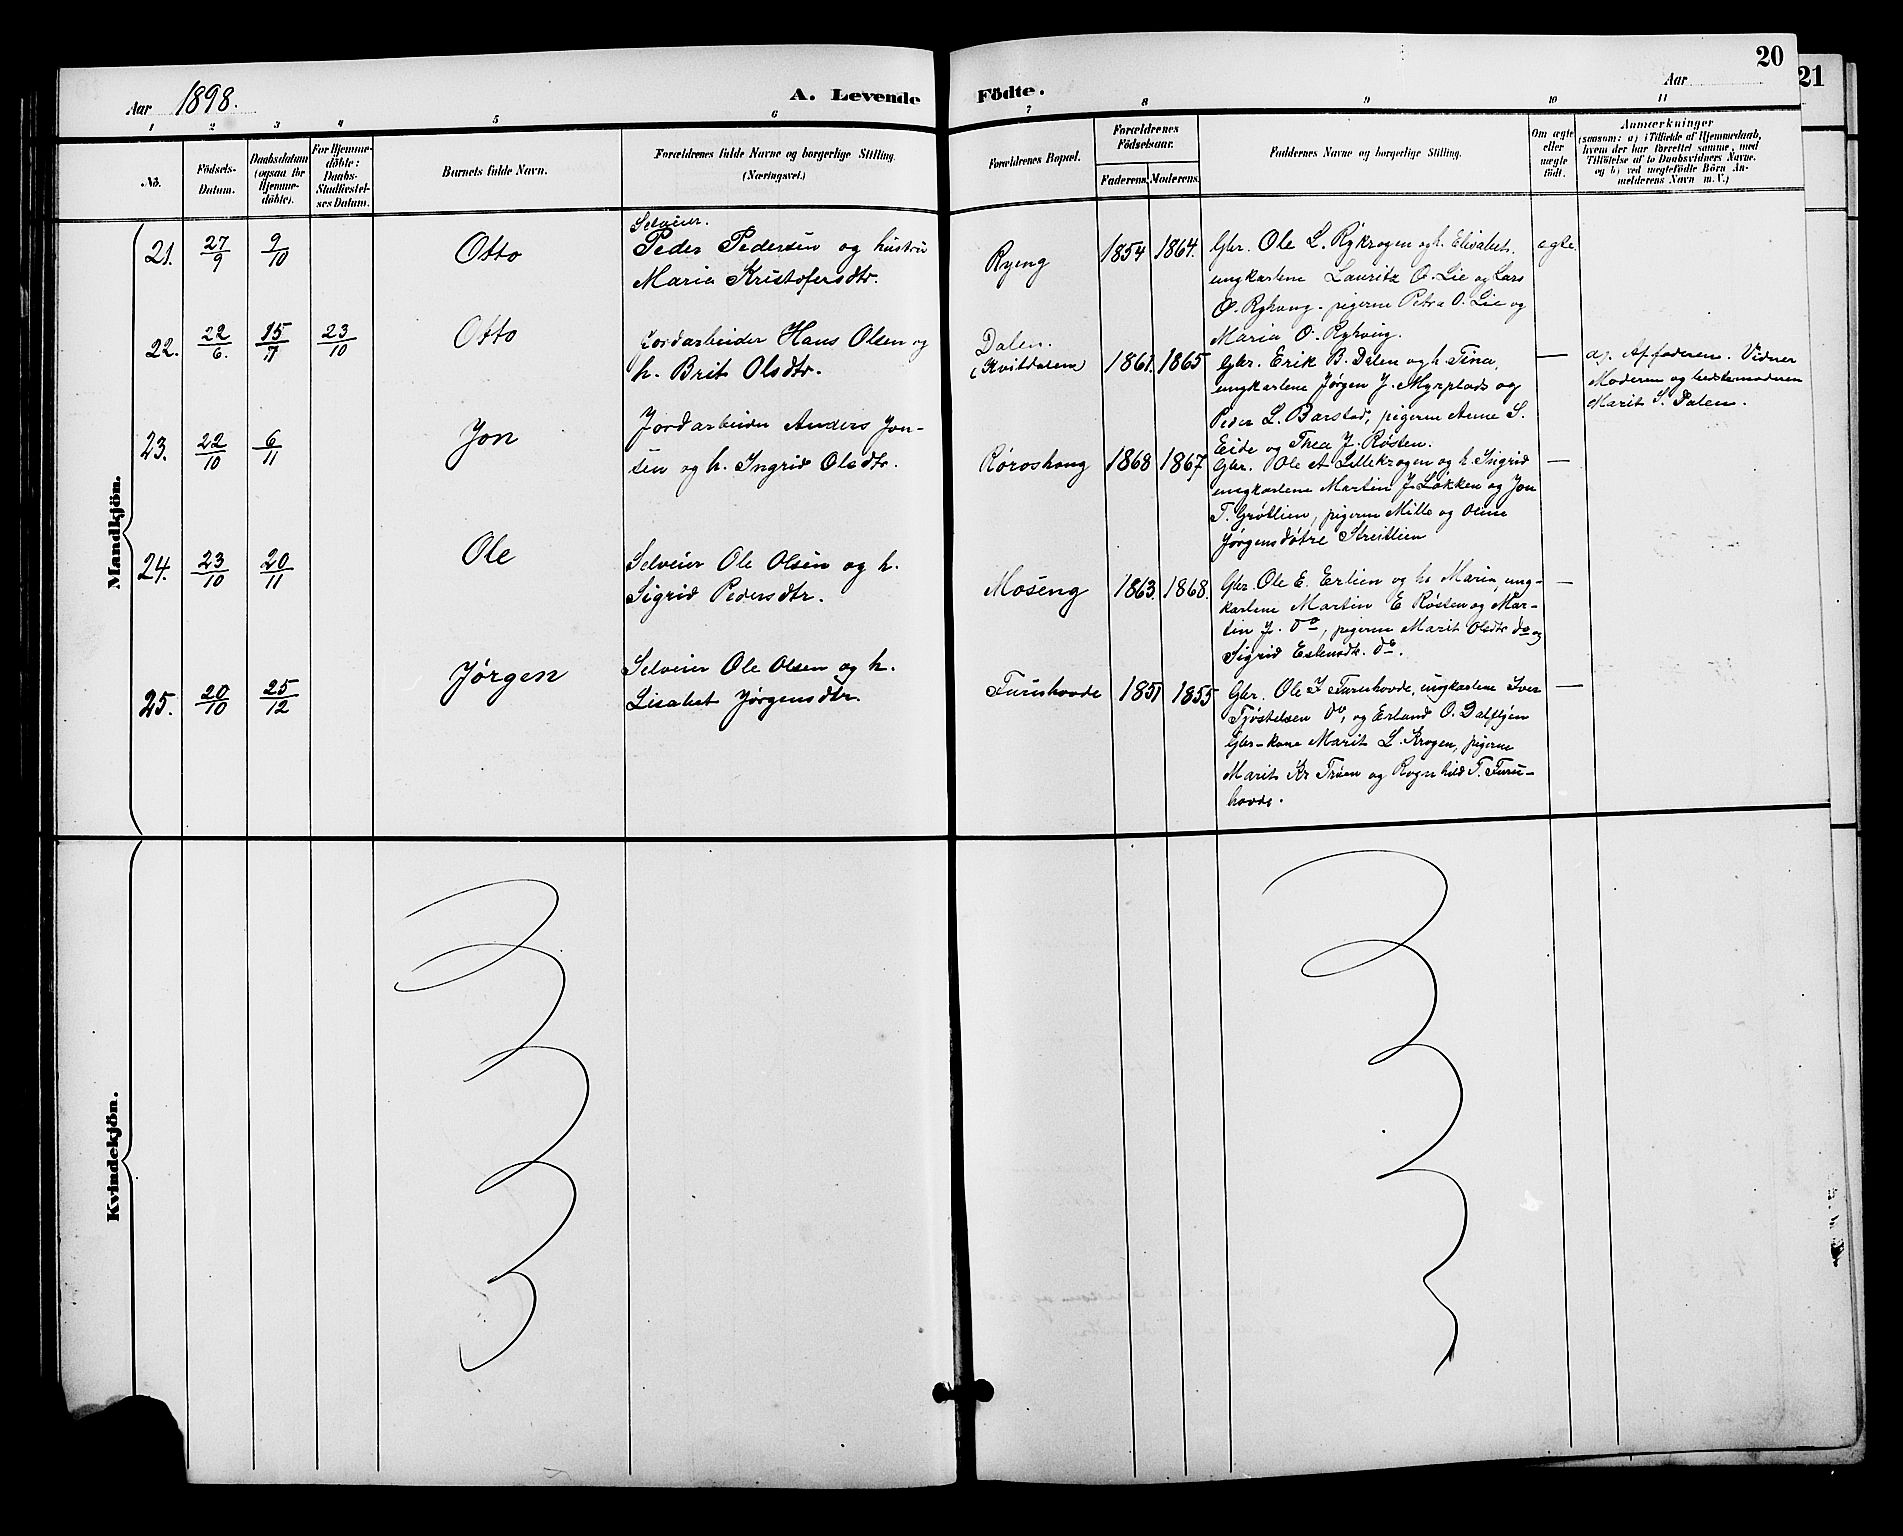 20
21
Aar 1898.
A. Levende Födte.
Aar
1 2 3 4 5 6 7 8 9 10 11
No.
Födsels-Datum.
Daabsdatum (ogsaa for Hjemmedöbte).
For Hjemmedöbte: Daabs-Stadfæstelses Datum.
Barnets fulde Navn.
Forældrenes fulde Navne og borgerlige Stilling.
(Næringsvei.)
Forældrenes Bopæl.
Forældrenes Födselsaar.
Faderens. Moderens.
Faddernes Navne og borgerlige Stilling.
Om ægte eller uægte födt.
Anmærkninger
(saasom: a) i Tilfælde af Hjemmedaab, hvem der har forrettet samme, med Tilföielse af to Daabsvidners Navne. og b) ved uægtefödte Börn Anmelderens Navn m. V.)
Mandkjön.
21. 27/9 9/10 Otto
Selveier.
Peder Pedersen og hustru
Maria Kristofersdtr.
Ryeng 1854 1864.
Gbr. Ole L. Rykrogen og h. Elisabet,
ungkarlene Lauritz O. Lie og Lars
O. Ryhaug. pigerne Petra O. Lie og
Maria O. Ryhaug.
ægte
22. 22/6. 15/7 23/10 Otto
Jordarbeider Hans Olsen og
h. Brit Olsdtr.
Dalen.
(Kvitdalen) 1861. 1865
Gbr. Erik B. Dalen og h. Tina,
ungkarlene Jørgen J. Myrplads og
Peder L. Barstad, pigerne Anne S.
Eide og Thea J. Røsten.
—
a). Af faderen. Vidner
Moderen og bedstemoderen
Marit S. Dalen.
23. 22/10 6/11 Jon
Jordarbeider Anders Jon-
sen og h. Ingrid Olsdtr.
Røroshaug 1868 1867
Gbr. Ole A Lillekrogen og h. Ingrid
ungkarlene Martin J. Løkken og Jon
T. Grøtlien, pigerne Mille og Oline
Jørgensdøtre Streitlien
—
24. 23/10 20/11 Ole
Selveier Ole Olsen og h.
Sigrid Pedersdtr.
Moseng 1863. 1868.
Gbr. Ole E. Erlien og h. Maria, ung-
karlene Martin E Røsten og Mar-
tin J. do, pigerne Marit Olsdtr do og
Sigrid Estensdtr. do.
—
25. 20/10 25/12 Jørgen
Selveier Ole Olsen og h.
Lisabet Jørgensdtr.
Furuhovde 1851 1855
Gbr. Ole J Furuhovde, ungkarlene Iver
Tjøstelsen do, og Erland O. Dalfljen
Gbr-kone Marit L. Krogen, pigerne
Marit Kr Trøen og Rognhild T. Furu-
hovde.
—
Kvindekjön.